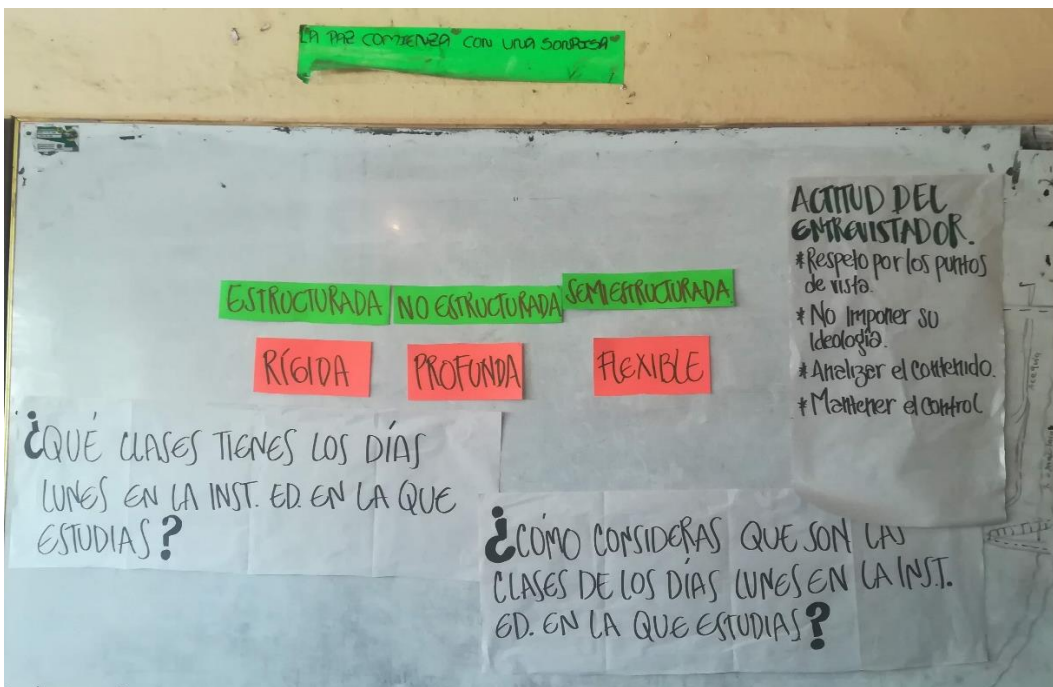 LA PAZ COMIENZA CON UNA SONRISA"
ESTRUCTURADA
NO ESTRUCTURADA
SEMIESTRUCTURADA
RÍGIDA
PROFUNDA
FLEXIBLE
ACTITUD DEL
ENTREVISTADOR.
*Respeto por los puntos
de vista.
*No Imponer su
Ideología.
*Analizar el contenido.
*Mantener el control
¿QUÉ CLASES TIENES LOS DÍAS
LUNES EN LA INST. ED. EN LA QUE
ESTUDIAS?
¿CÓMO CONSIDERAS QUE SON LAS
CLASES DE LOS DÍAS LUNES EN LA INST.
ED. EN LA QUE ESTUDIAS?